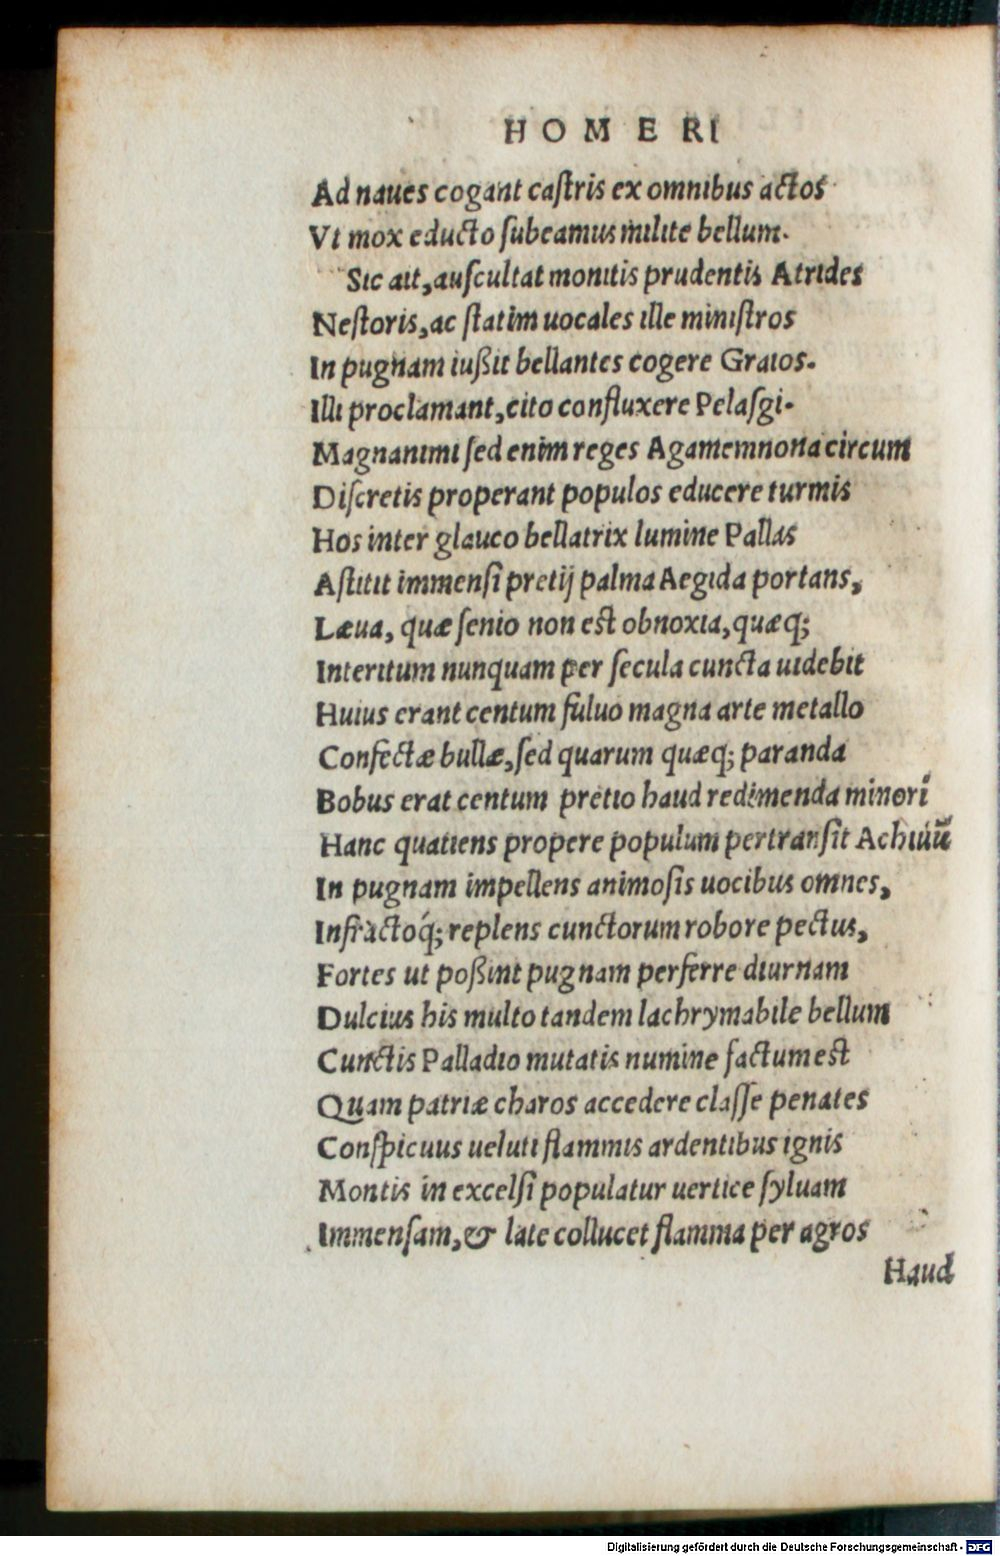 HOMERI
Ad naues cogant castris ex omnibus actos
Vt mox educto subeamus milite bellum.
Sic ait, auscultat monitis prudentis Atrides
Nestoris, ac statim uocales ille ministros
In pugnam iußit bellantes cogere Graios.
Illi proclamant, cito confluxere Pelasgi.
Magnanimi sed enim reges Agamemnona circum
Discretis properant populos educere turmis
Hos inter glauco bellatrix lumine Pallas
Astitit immensi pretij palma Aegida portans,
Læua, quæ senio non est obnoxia, quæq;
Interitum nunquam per secula cuncta uidebit
Huius erant centum fuluo magna arte metallo
Confectæ bullæ, sed quarum quæq; paranda
Bobus erat centum pretio haud redimenda minori
Hanc quatiens propere populum pertransit Achiuũ
In pugnam impellens animosis uocibus omnes,
Infractoq́; replens cunctorum robore pectus,
Fortes ut poßint pugnam perferre diurnam
Dulcius his multo tandem lachrymabile bellum
Cunctis Palladio mutatis numine factum est
Quam patriæ charos accedere classe penates
Conspicuus ueluti flammis ardentibus ignis
Montis in excelsi populatur uertice syluam
Immensam, & late collucet flamma per agros
Haud
Digitalisierung gefördert durch die Deutsche Forschungsgemeinschaft - DFG